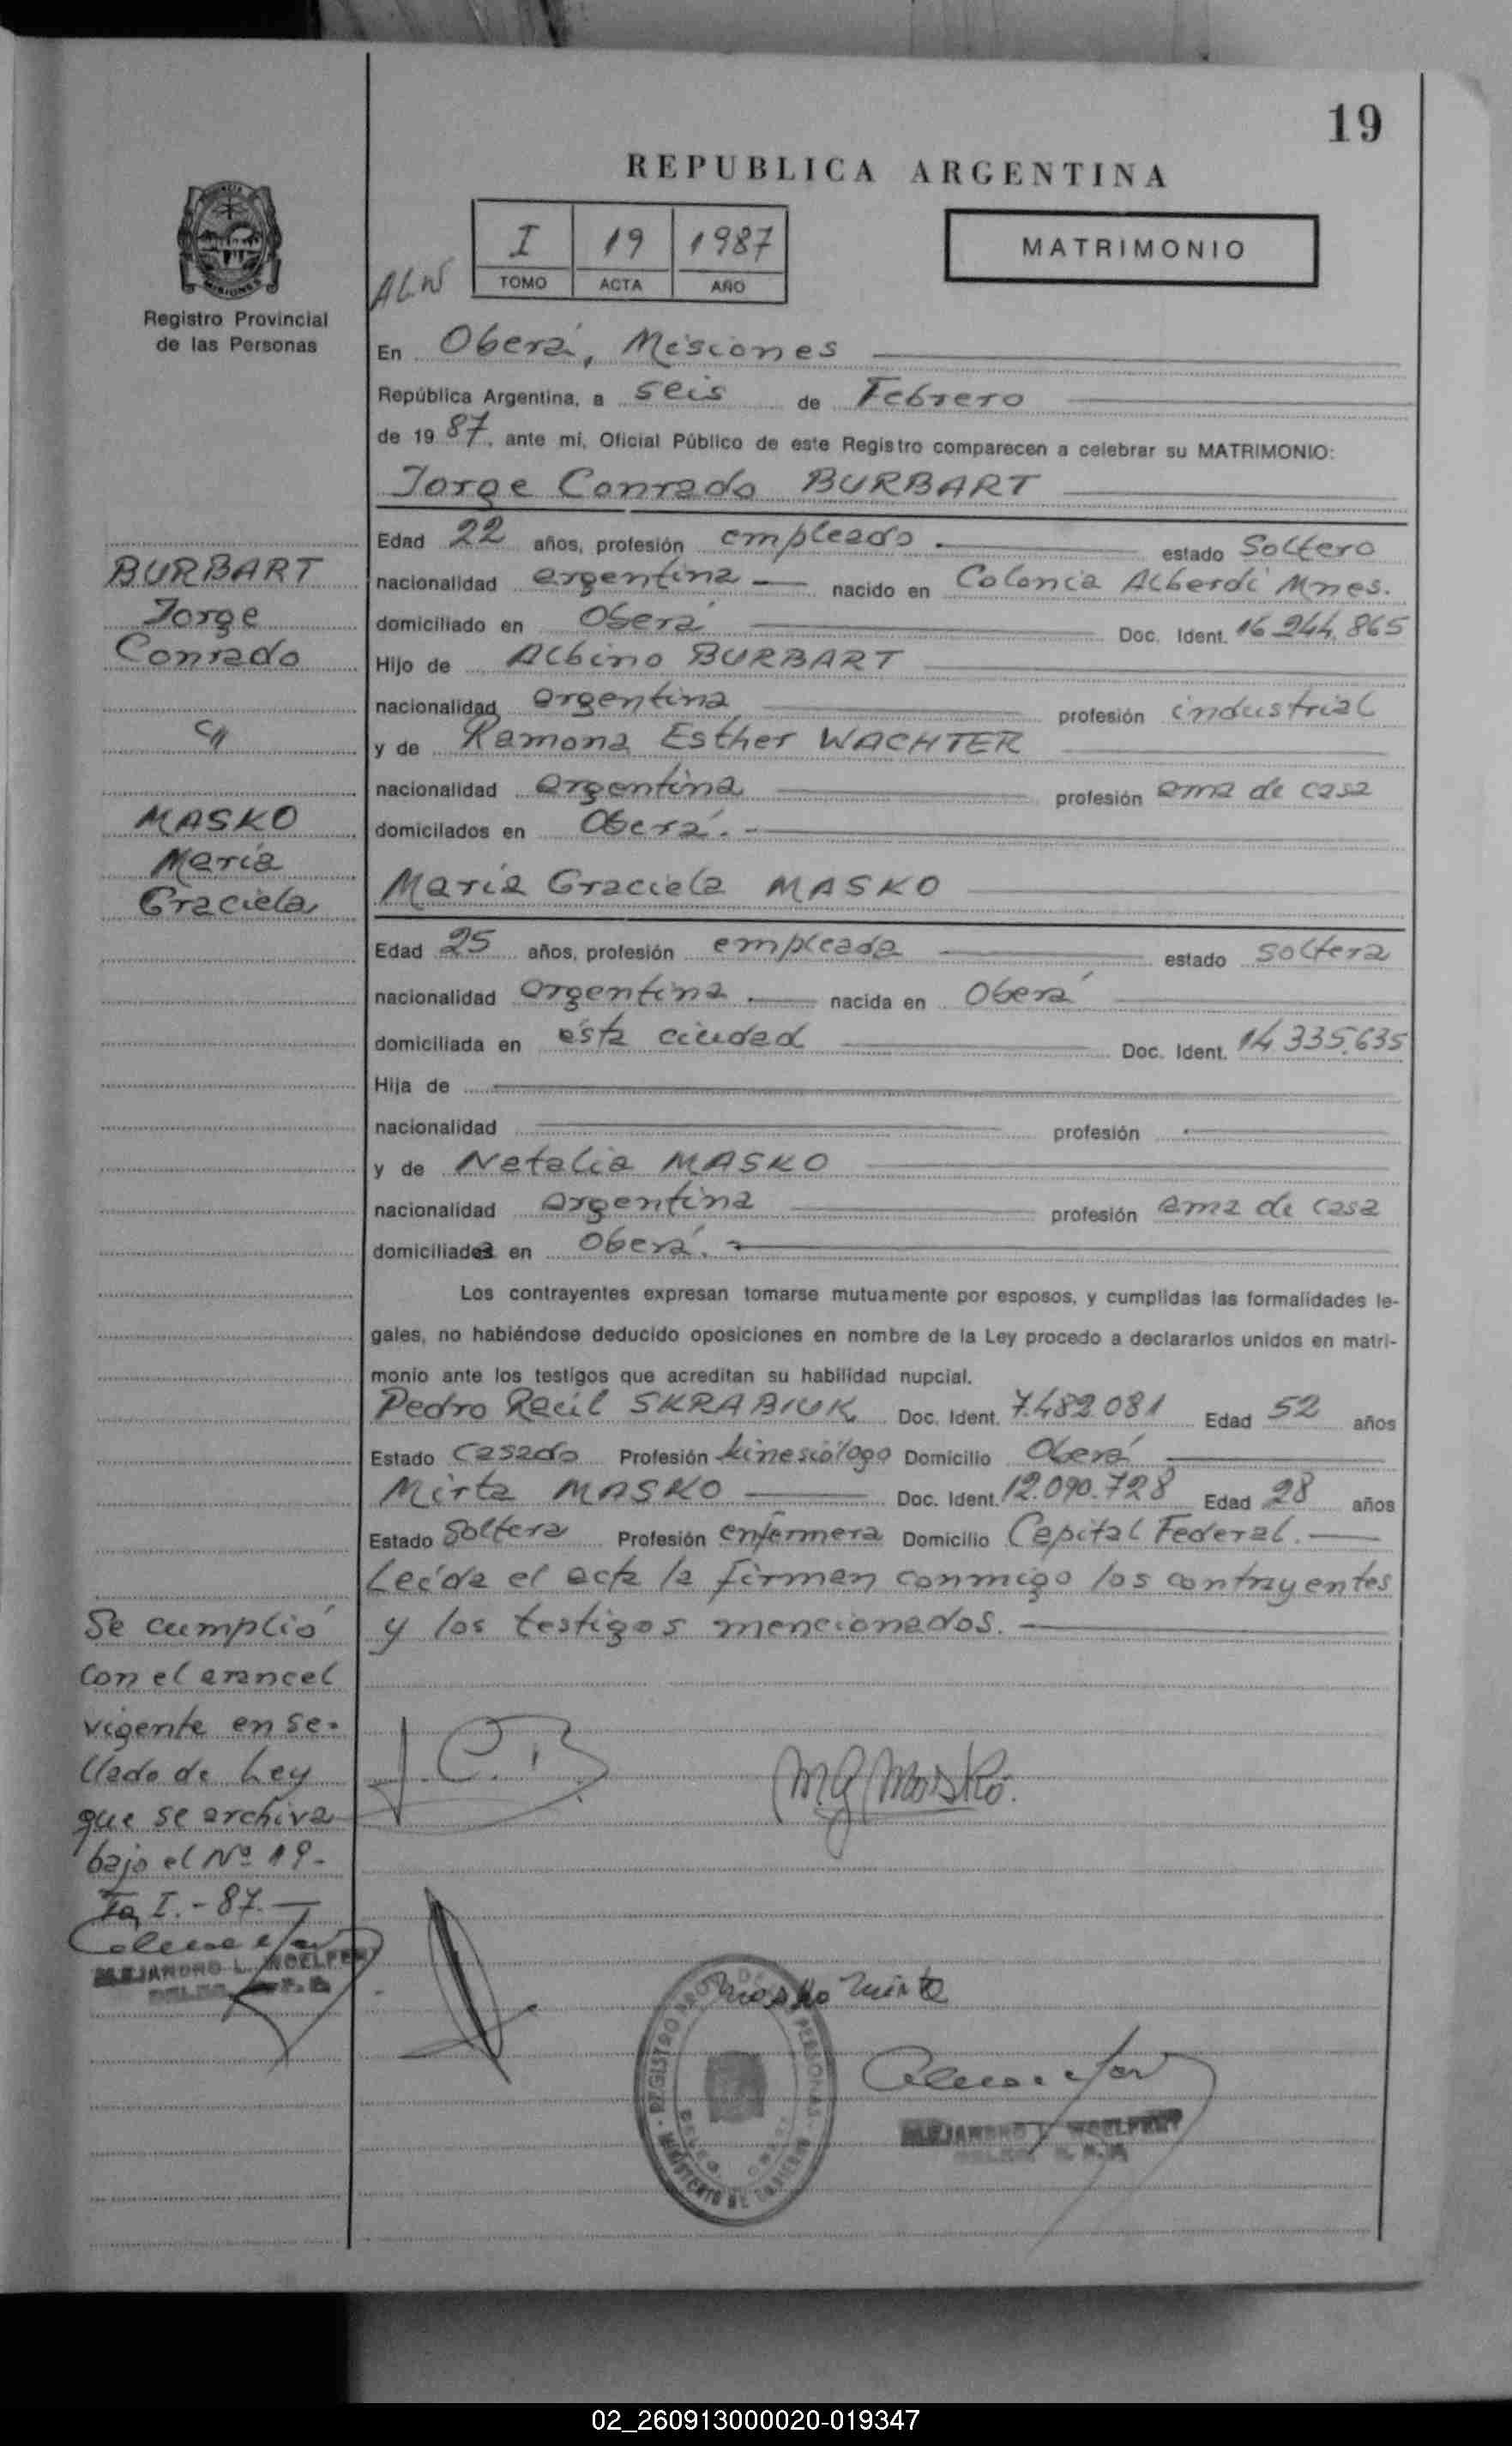 19
REPUBLICA ARGENTINA
I 19 1987
TOMO ACTA AÑO
MATRIMONIO
ALW
MISIONES
Registro Provincial
de las Personas
En Oberá, Misiones
República Argentina, a seis de Febrero
de 19 87, ante mí, Oficial Público de este Registro comparecen a celebrar su MATRIMONIO:
Jorge Conrado BURBART
Edad 22 años, profesión empleado estado Soltero
nacionalidad argentina nacido en Colonia Alberdi Mnes.
domiciliado en Oberá Doc. Ident. 16.244.865
Hijo de Albino BURBART
nacionalidad argentina profesión industrial
y de Ramona Esther WACHTER
nacionalidad argentina profesión ama de casa
domicilados en Oberá.
María Graciela MASKO
Edad 25 años, profesión empleada estado soltera
nacionalidad argentina nacida en Oberá
domiciliada en ésta ciudad Doc. Ident. 14.335.635
Hija de
nacionalidad profesión
y de Natalia MASKO
nacionalidad argentina profesión ama de casa
domiciliada en Oberá.
Los contrayentes expresan tomarse mutuamente por esposos, y cumplidas las formalidades le-
gales, no habiéndose deducido oposiciones en nombre de la Ley procedo a declararlos unidos en matri-
monio ante los testigos que acreditan su habilidad nupcial.
Pedro Raúl SKRABIUK Doc. Ident. 7.482.081 Edad 52 años
Estado Casado Profesión kinesiólogo Domicilio Oberá
Mirta MASKO Doc. Ident. 12.090.728 Edad 28 años
Estado Soltera Profesión enfermera Domicilio Capital Federal.
Leída el acta la firman conmigo los contrayentes
y los testigos mencionados.
BURBART
Jorge
Conrado
c//
MASKO
María
Graciela
Se cumplió
con el arancel
vigente en se-
llado de Ley
que se archiva
bajo el Nº 19-
Tº I.-87.
ALEJANDRO L. WOELFERT
J.C.B
MG Masko.
Masko Mirta
REGISTRO PERSONAS
MINISTERIO DE GOBIERNO
ALEJANDRO L. WOELFERT
02_260913000020-019347